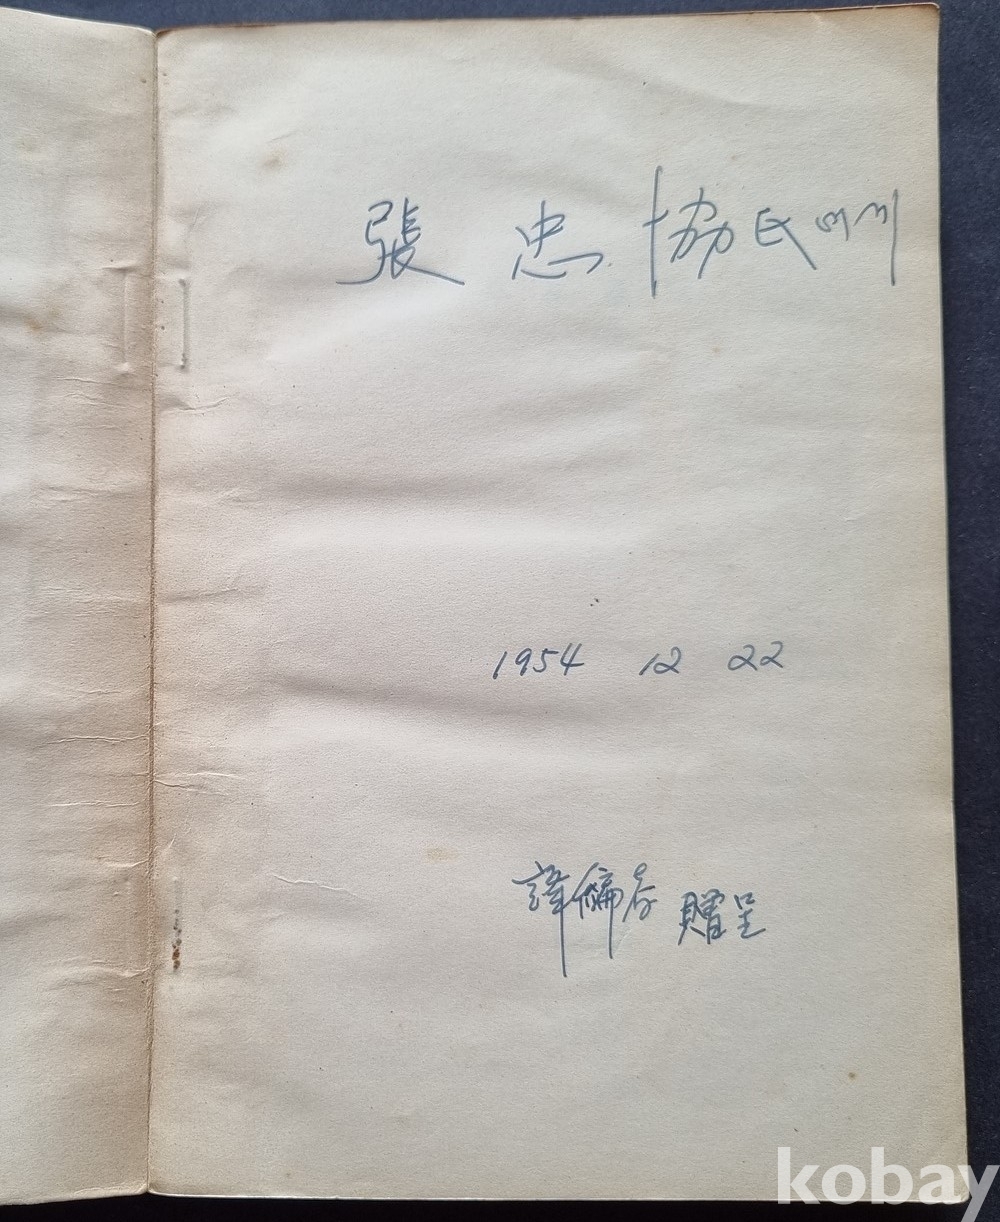 張 忠 協氏에게
1954 12 22
譯編者 贈呈
kobay